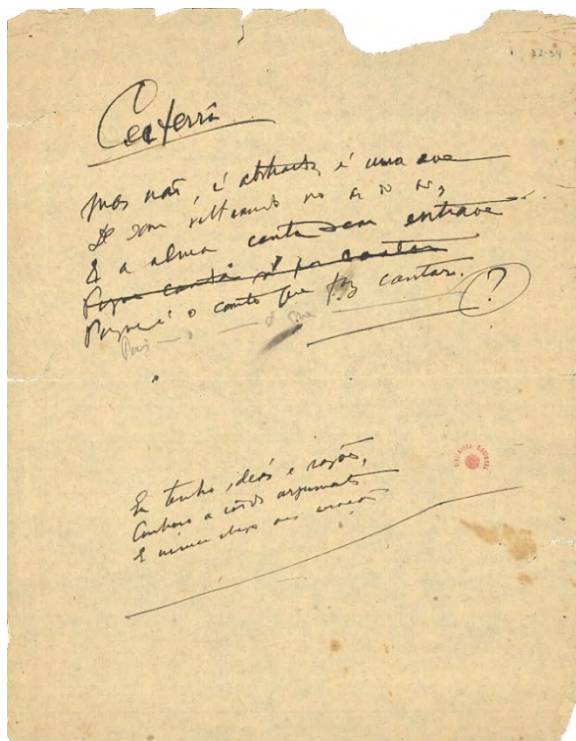 Ceifeira
Mas não, é abstracta, é uma ave
De som volteando no ar do ar,
E a alma canta sem entrave
Porque canta só por cantar
Porque é o canto que faz cantar. ?
Pois — o — é que —
Eu tenho ideias e razões,
Conheço a côr dos argumentos
E nunca chego aos corações